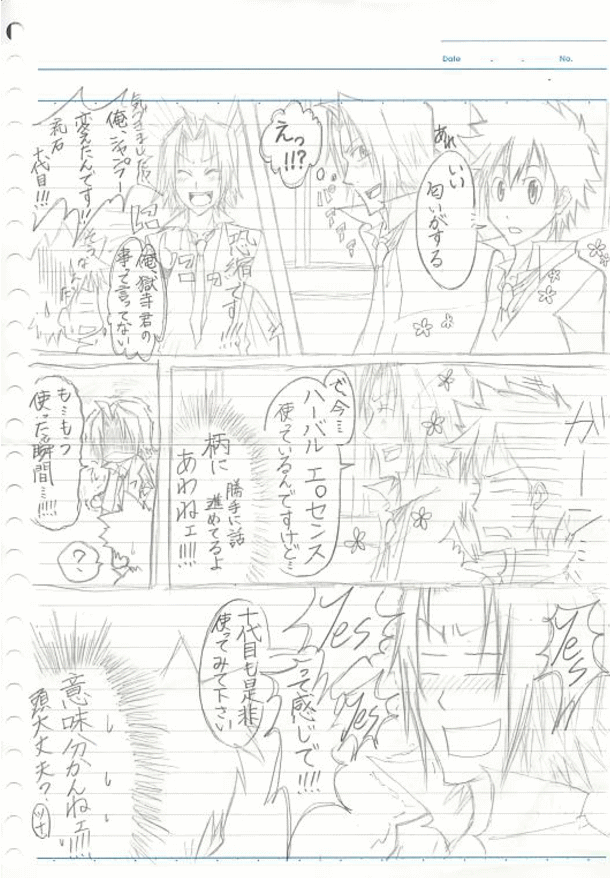 Date
No.
あれ
いい
匂いがする
えっ
!!?
恐縮です!!!!
気づきました!?
俺、シャンプー
変えたんです!!
流石
十代目!!!
俺獄寺君の
事って言ってない
で今…
ハーバルエッセンス
使っているんですけど…
ガーーン
柄に
あわねェ!!!!
勝手に話
進めてるよ
も…もう
使った瞬間…!!!!
?
Yes
Yes
Yes
って感じで!!!!
十代目も是非
使ってみて下さい
意味分かんねェ!!!!
頭大丈夫?